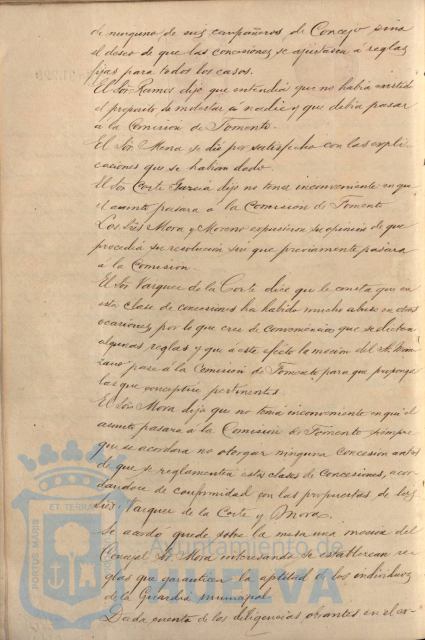 de ninguno de sus compañeros de Concejo sino
el deseo de que las concesiones se ajustasen a reglas
fijas para todos los casos.
El Sor. Ramos dijo que entendia que no habia existido
el proposito de molestar a nadie y que debia pasar
a la Comision de Fomento.
El Sor. Mora se dio por satisfecho con las expli-
caciones que se habian dado.
El Sor Corte Garcia dijo no tener inconveniente en que
el asunto pasara a la Comision de Fomento
Los Srés Mora y Moreno expusieron su opinion de que
procedia su resolucion sin que previamente pasara
a la Comision.
El Sor Vazquez de la Corte dice que le consta que en
esta clase de concesiones ha habido mucho abuso en otras
ocasiones, por lo que cree de conveniencia que se dicten
algunas reglas y que a este efecto la mocion del Sr.
pase a la Comision de Fomento para que proponga
las que conceptue pertinentes.
El Sor. Mora dijo que no tenia inconveniente en que el
asunto pasara a la Comision de Fomento siempre
que se acordara no otorgar ninguna concesion antes
de que se reglamenten estas clases de concesiones, acor-
dandose de conformidad con las propuestas de los
Srés Vazquez de la Corte y Mora.
Se acordó quede sobre la mesa una mocion del
Concejal Sr. Mora interesando se establezcan re-
glas que garanticen la aptitud de los individuos
de la Guardia municipal.
Dada cuenta de las diligencias
PORTUS MARIS ET TERRAE
Ayuntamiento de
HUELVA